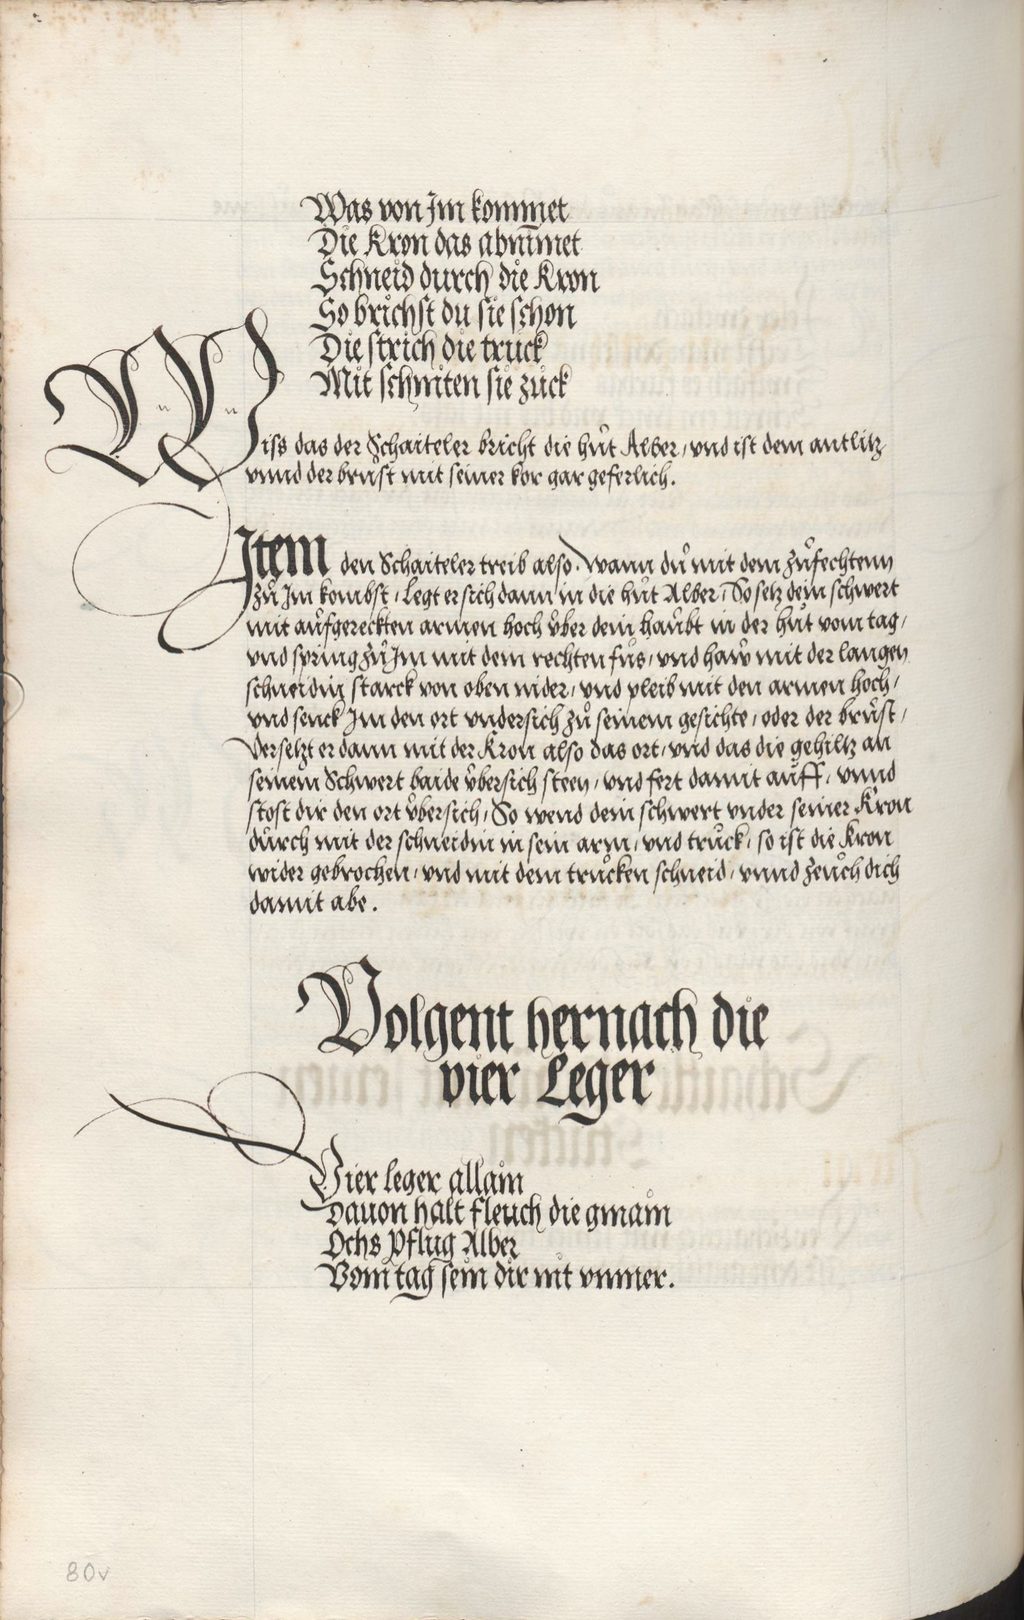 Was von Im kommet
Die Kron das abnimet
Schneid durch die Kron
So brichst du sie schon
Die strich die truck
Mit schniten sie zuck
Wiss das der Schaiteler bricht die hůt Alber, vnd ist dem antlitz
vnnd der brust mit seiner kor gar geferlich.
Item den Schaiteler treib also. Wann dů mit dem zůfechtenn
zů Im kombst, Legt er sich dann in die hůt Alber, So setz dein schwert
mit aufgereckten armen hoch vber dein haubt in der hůt vom tag,
vnd spring zů Im mit dem rechten fůs, vnd haw mit der langen
schneidin starck von oben nider, vnd pleib mit den armen hoch,
vnd senck Im den ort vndersich zů seinem gesichte, oder der brust,
Versetzt er dann mit der Kron also das ort, vnd das die gehiltz an
seinem Schwert baide vbersich steen, vnd fert damit auff, vnnd
stost dir den ort vbersich, So wend dein schwert vnder seiner Kron
durch mit der schneidin in sein arm, vnd truck, so ist die Kron
wider gebrochen, vnd mit dem trucken schneid, vnnd zeuch dich
damit abe.
Volgent hernach die
vier Leger
Vier leger allain
Dauon halt fleuch die gmain
Ochs Pflug Alber
Vom tag sein dir nit vnmer.
80v